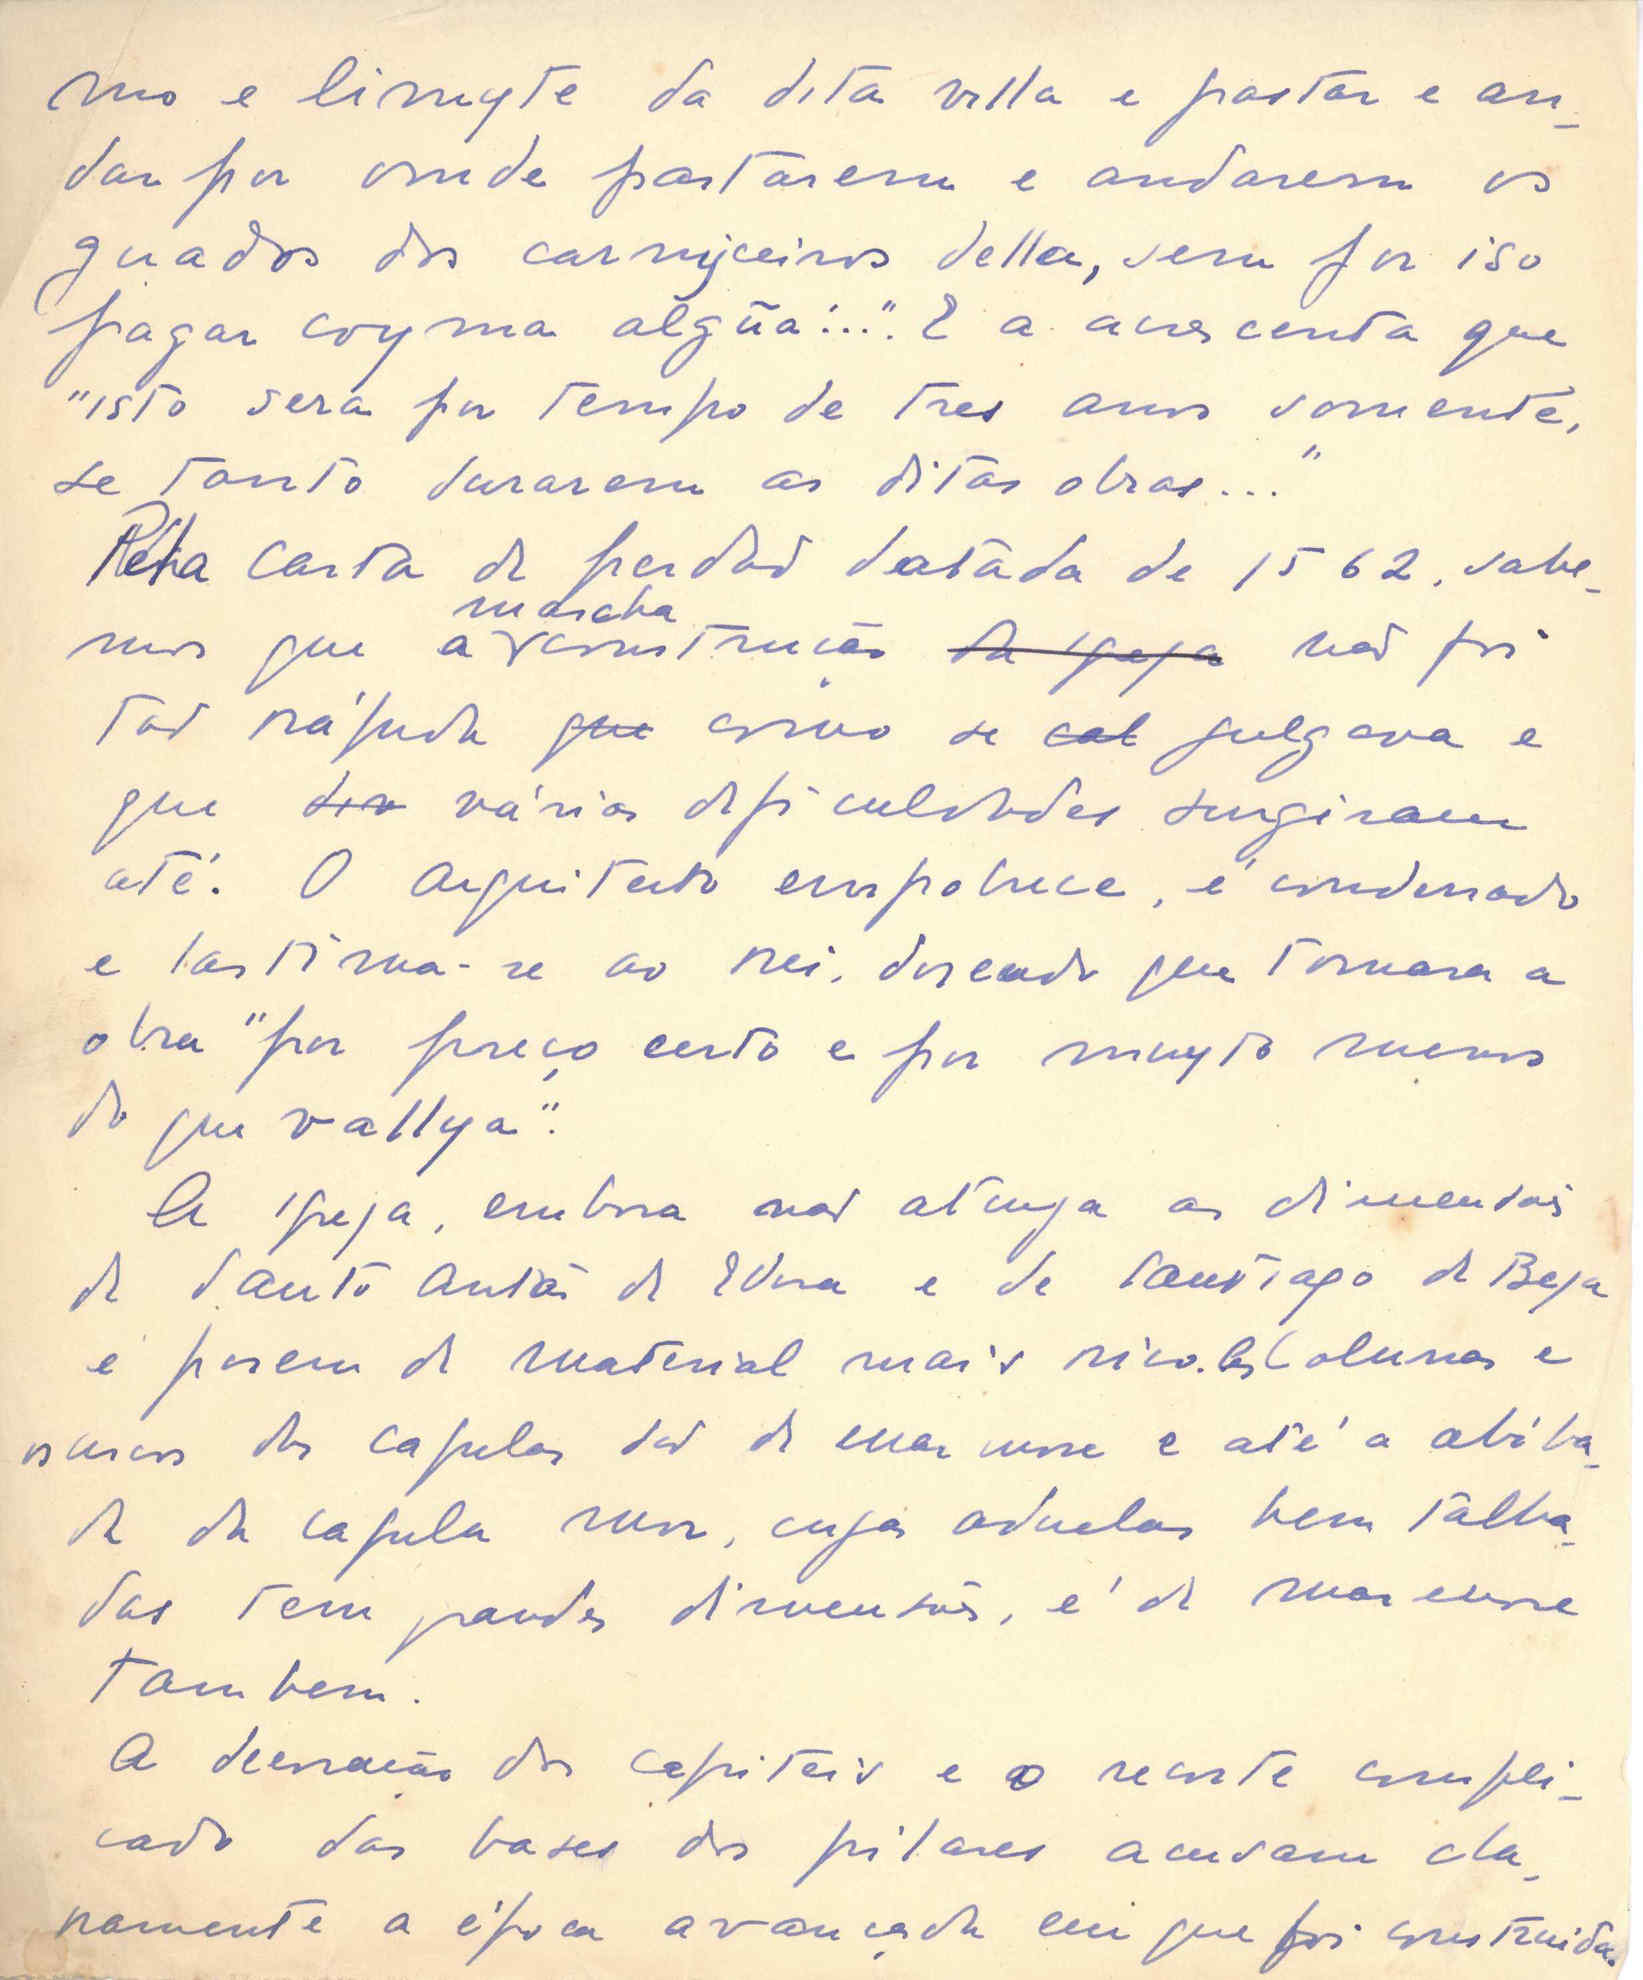 mo e limyte da dita villa e pastar e an-
dar por omde pastarem e andarem os
guados dos carnyceiros della, sem por iso
pagar coyma algũa...". E a acrescenta que
"isto sera por tempo de tres anos somente,
se tanto durarem as ditas obras..."
Pela carta de perdão datada de 1562, sabe-
mos que a marcha construção da igreja não foi
tão rápida que como se cal julgava e
que várias dificuldades surgiram
até. O arquitecto empobrece, é condenado
e lastima-se ao rei, dizendo que tomara a
obra "por preço certo e por muyto menos
do que vallya".
A igreja, embora não atinja as dimensões
de Santo Antão de Évora e de Santiago de Beja
é porem de material mais rico. As Colunas e
os arcos das capelas são de marmore e até a abóba-
da da capela mor, cujas aduelas bem talha-
das tem grandes dimensões, é de marmore
tambem.
A decoração dos capiteis e o recorte compli-
cado das bases dos pilares acusam cla-
ramente a época avançada em que foi construida.